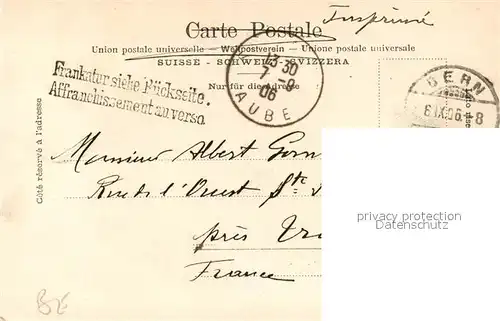 Imprimé
Carte Postale
Union postale universelle – Weltpostverein – Unione postale universale
SUISSE - SCHWEIZ - SVIZZERA
Nur für die Adresse
Frankatur siehe Rückseite.
Affranchissement au verso
13-30
7-9
06
AUBE
BERN
6.IX.06.-8
Côté réservé à l'adresse
Monsieur Albert
Rue de l'Ouest Ste
près
France
privacy protection
Datenschutz